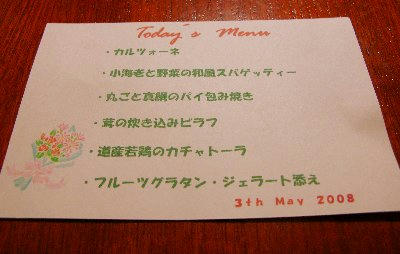 Today's Menu
・カルツォーネ
・小海老と野菜の和風スパゲッティー
・丸ごと真鯛のパイ包み焼き
・茸の炊き込みピラフ
・道産若鶏のカチャトーラ
・フルーツグラタン・ジェラート添え
3th May 2008